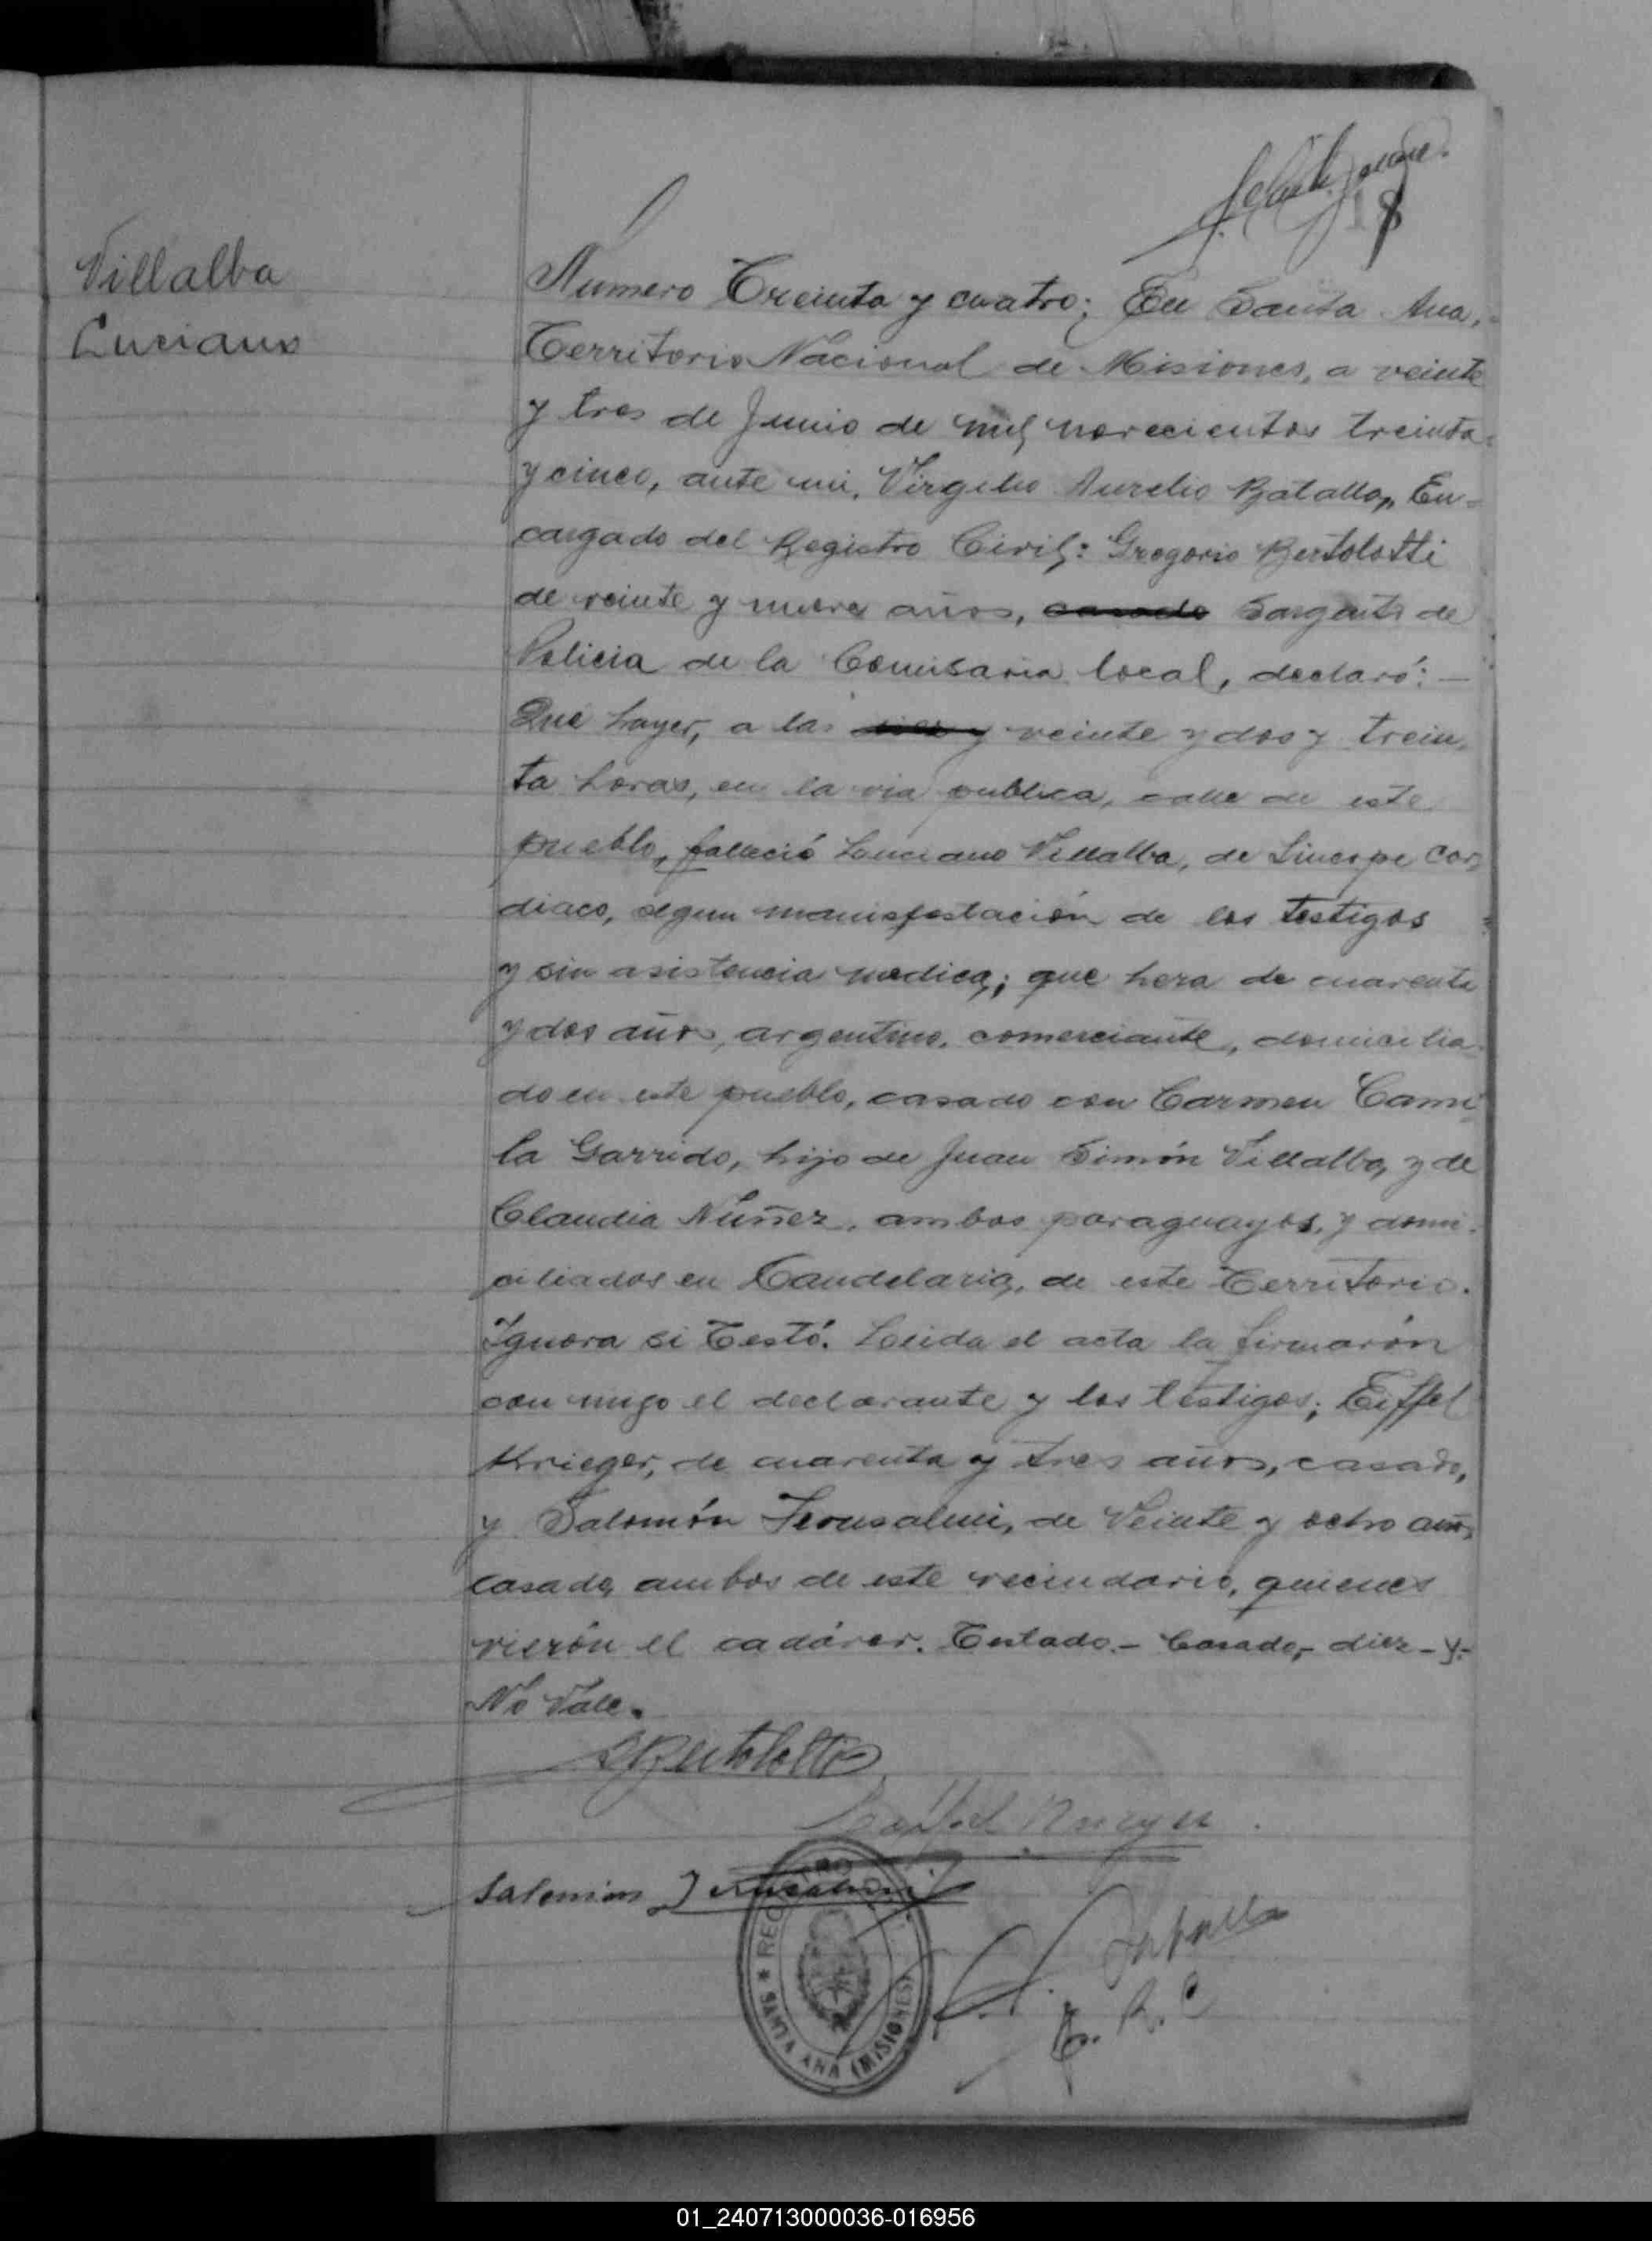 18
Villalba
Luciano
Numero Treinta y cuatro; En Santa Ana,
Territorio Nacional de Misiones, a veinte
y tres de Junio de mil novecientos treinta
y cinco, ante mi, Virgilio Aurelio Batalla, En-
cargado del Registro Civil: Gregorio Bertolotti
de veinte y nueve años, casado Sargento de
Policia de la Comisaria local, declaró:—
Que hayer, a las diez y veinte y dos y trein-
ta horas, en la via publica, calle de este
pueblo, falleció Luciano Villalba, de Sincope Car-
diaco, segun manisfestación de los testigos
y sin asistencia medica; que hera de cuarenta
y dos años, argentino, comerciante, domicilia-
do en este pueblo, casado con Carmen Cami-
la Garrido, hijo de Juan Simón Villalba, y de
Claudia Nuñez, ambos paraguayos, y domi-
ciliados en Candelaria, de este Territorio.
Ignora si Testó. Leida el acta la firmarón
con migo el declarante y los testigos; Eiffel
Krieger, de cuarenta y tres años, casado,
y Salomón Jerusalmi, de Veinte y ocho años,
casado, ambos de este vecindario, quienes
vierón el cadáver. Testado.- Casado,- diez - y.-
No Vale.
GBertolotti
Salomon Jerusalmi
REGISTRO CIVIL
* SANTA ANA (MISIONES)
E. R. C
01_240713000036-016956